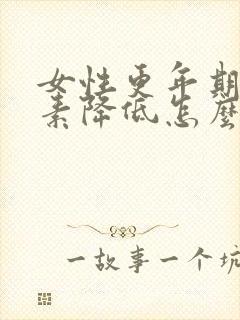 女性更年期
素降低怎麼
一故事一个坑